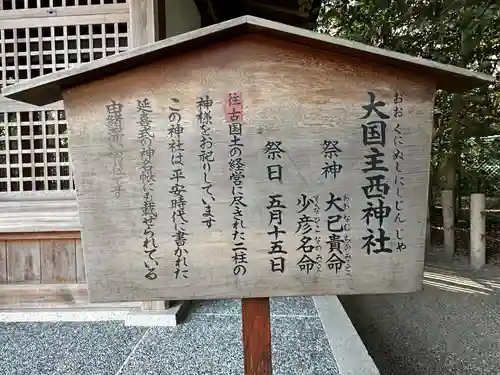 大国主西神社
おおくにぬしにしじんじゃ
祭神 大己貴命
おおなむちのみこと
少彦名命
すくなひこなのみこと
祭日 五月十五日
往古国土の経営に尽された二柱の
神様をお祀りしています
この神社は平安時代に書かれた
延喜式の神名帳にも載せられている
由緒